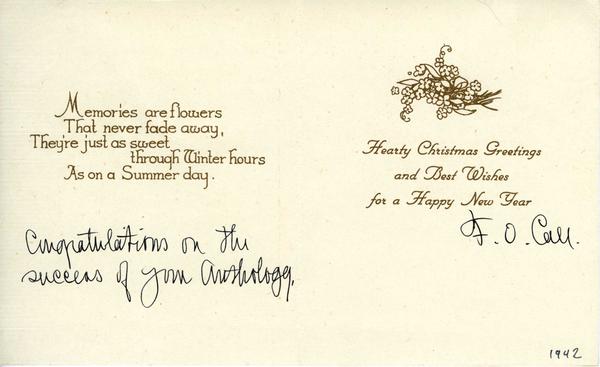 Memories are flowers
That never fade away,
They're just as sweet
through Winter hours
As on a Summer day.
Congratulations on the
success of your Anthology.
Hearty Christmas Greetings
and Best Wishes
for a Happy New Year
F. O. Call.
1942